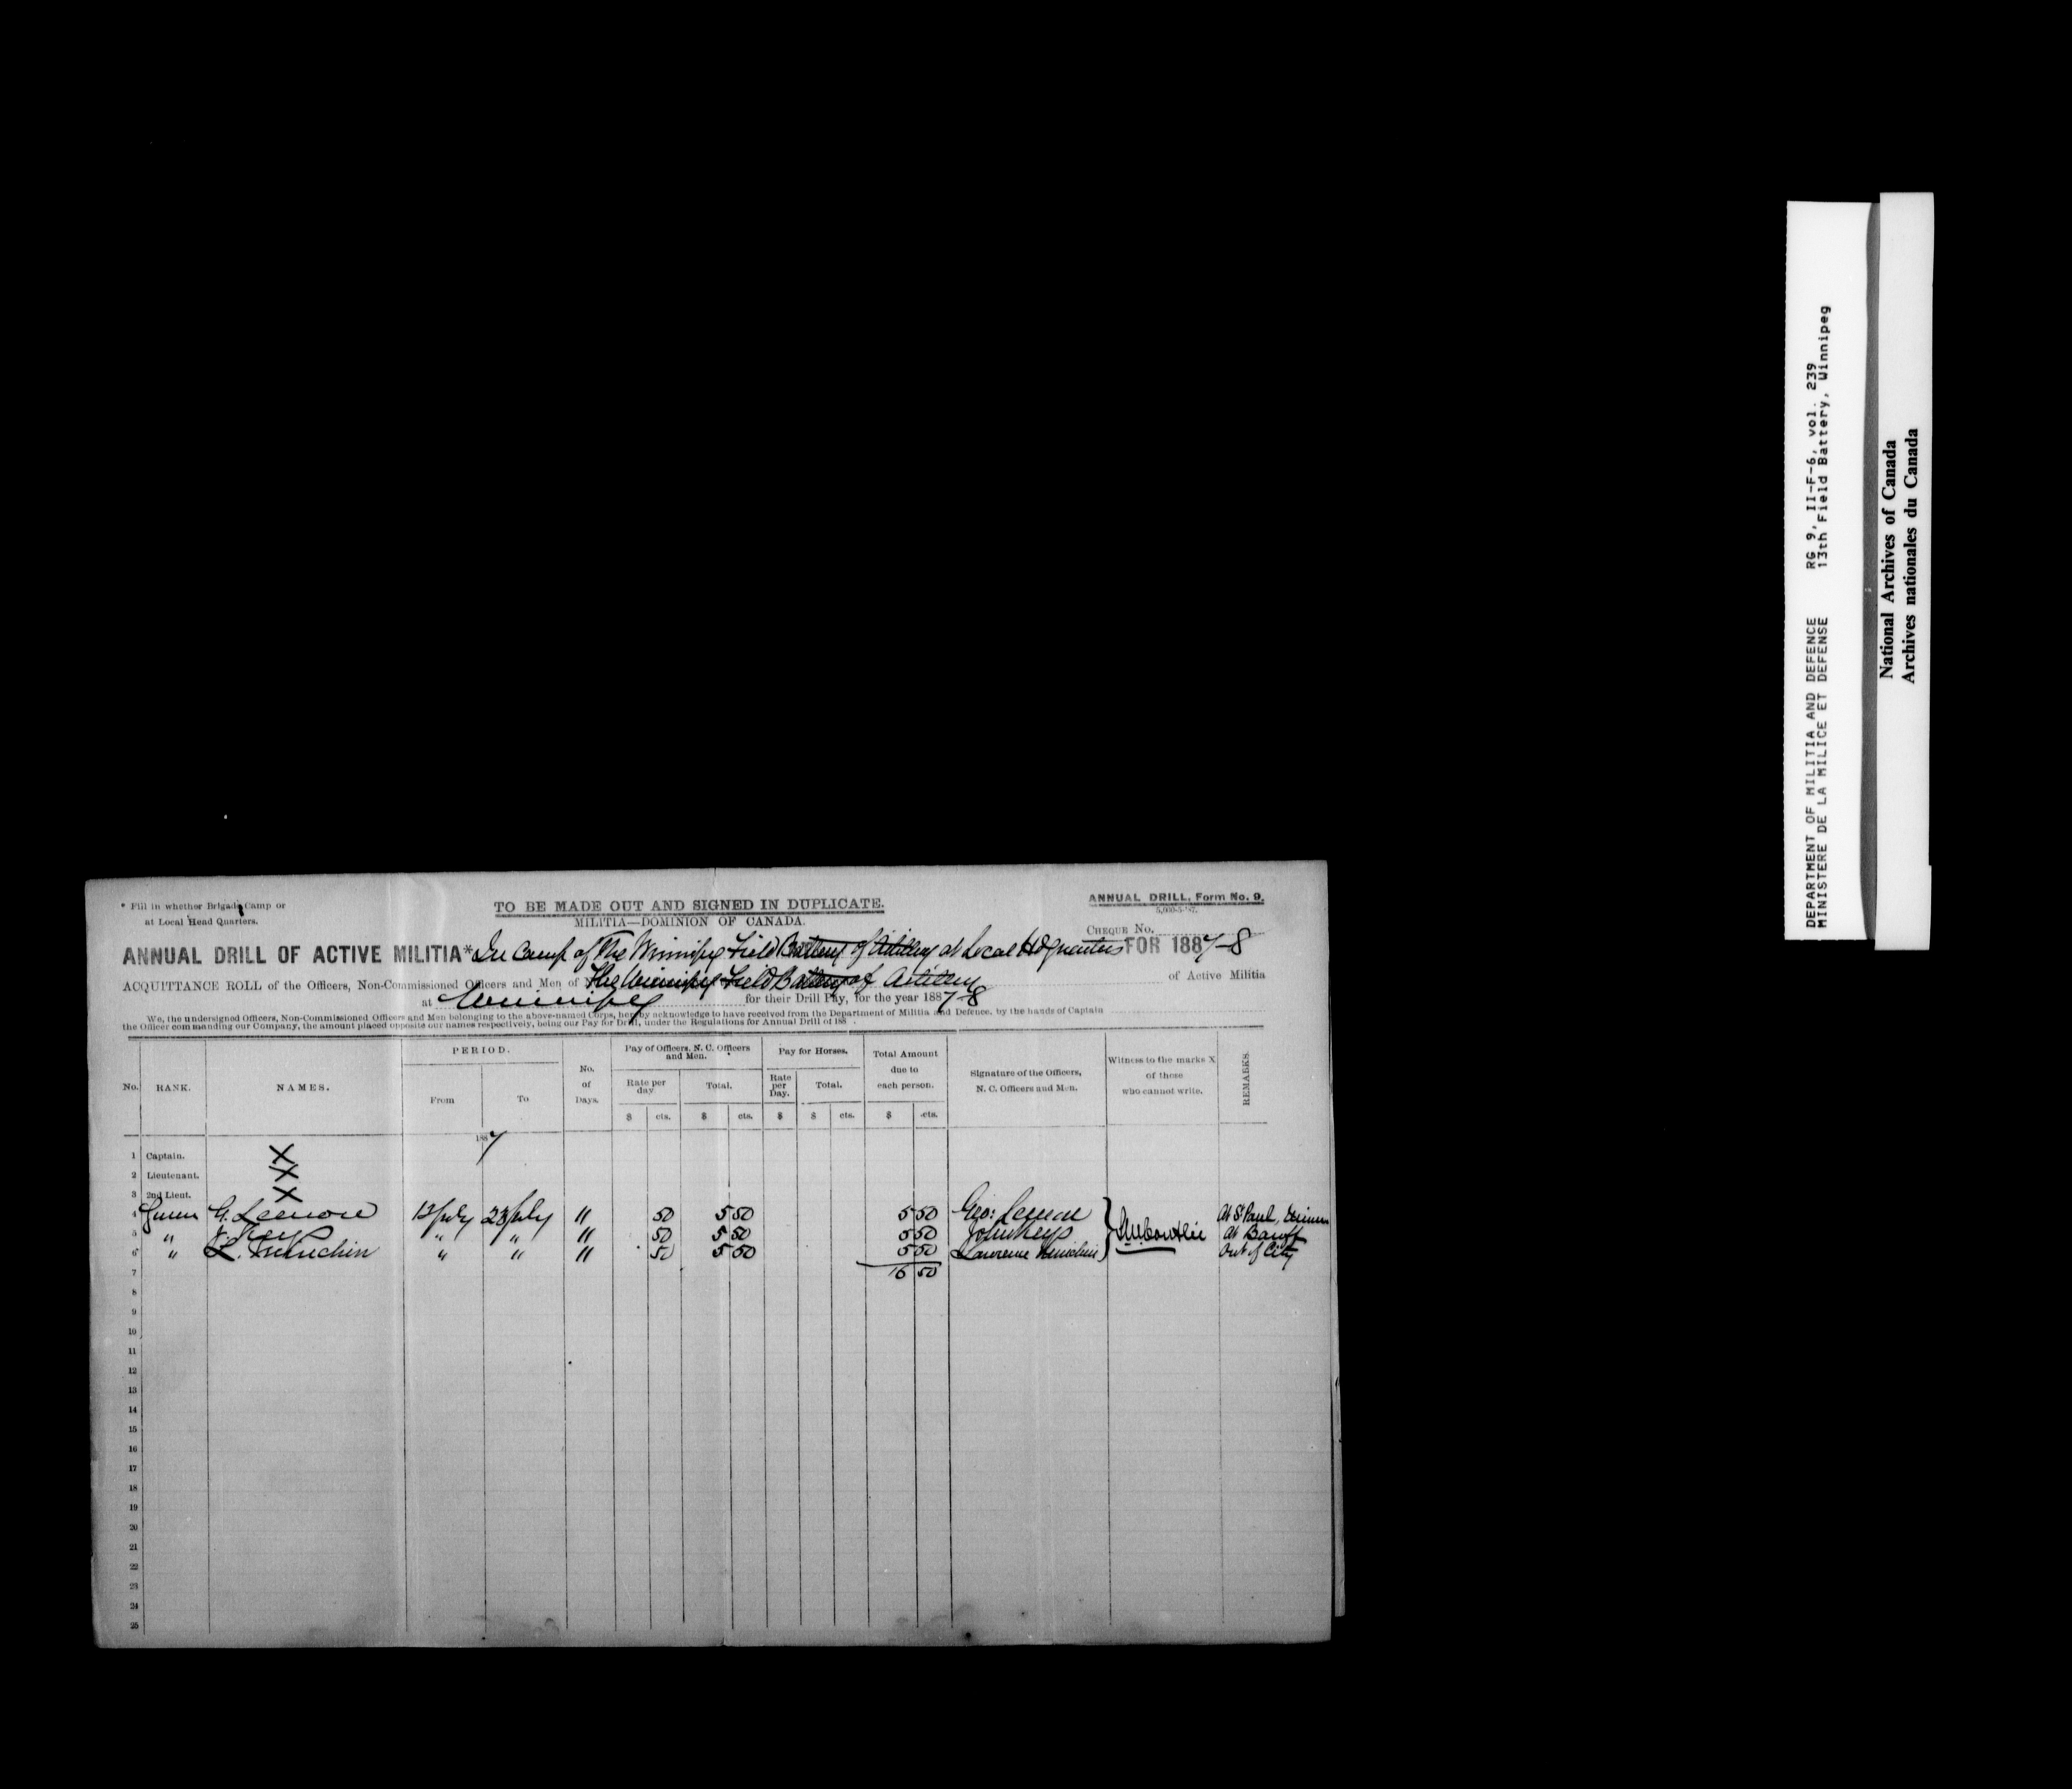 * Fill in whether Brigade Camp or
at Local Head Quarters.
TO BE MADE OUT AND SIGNED IN DUPLICATE.
MILITIA—DOMINION OF CANADA.
ANNUAL DRILL, Form No. 9.
5,000-5-'87.
CHEQUE No.
ANNUAL DRILL OF ACTIVE MILITIA* In Camp of The Winnipeg Field Battery of Artillery at Local Hd quarters FOR 1887-8
ACQUITTANCE ROLL of the Officers, Non-Commissioned Officers and Men of The Winnipeg Field Battery of Artillery of Active Militia
at Winnipeg for their Drill Pay, for the year 1887-8
We, the undersigned Officers, Non-Commissioned Officers and Men belonging to the above-named Corps, hereby acknowledge to have received from the Department of Militia and Defence, by the hands of Captain
the Officer commanding our Company, the amount placed opposite our names respectively, being our Pay for Drill, under the Regulations for Annual Drill of 188 .
No. RANK. NAMES. PERIOD. From To No. of Days. Pay of Officers, N. C. Officers and Men. Rate per day. $ cts. Total. $ cts. Pay for Horses. Rate per Day. $ Total. $ cts. Total Amount due to each person. $ cts. Signature of the Officers, N. C. Officers and Men. Witness to the marks X of those who cannot write. REMARKS.
1887
1 Captain. X
2 Lieutenant. X
3 2nd Lieut. X
4 Gunner G. Lemon 12 July 23 July 11 50 5 50 5 50 Geo: Lemon At St Paul,
5 " J. Keys " " 11 50 5 50 5 50 John Keys At Banff
6 " L. Minchin " " 11 50 5 50 5 50 Lawrence Minchin Out of City
7 16 50
8
9
10
11
12
13
14
15
16
17
18
19
20
21
22
23
24
25
DEPARTMENT OF MILITIA AND DEFENCE RG 9, II-F-6, vol. 239
MINISTERE DE LA MILICE ET DEFENSE 13th Field Battery, Winnipeg
National Archives of Canada
Archives nationales du Canada